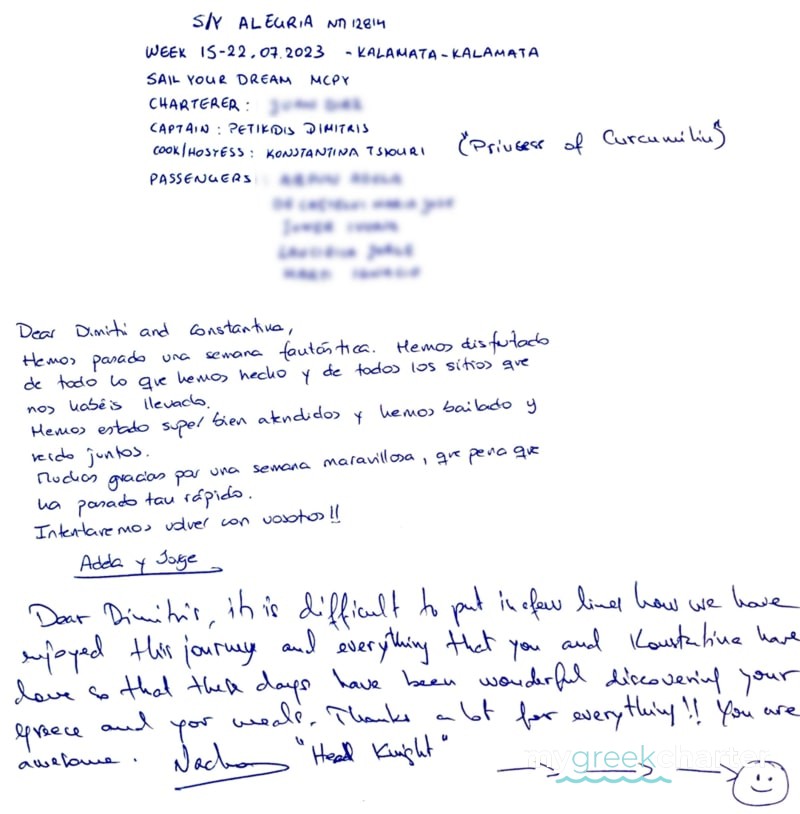 S/Y ALEGRIA NΠ 12814
WEEK 15-22.07.2023 - KALAMATA - KALAMATA
SAIL YOUR DREAM MCPY
CHARTERER:
CAPTAIN: PETIKIDIS DIMITRIS
COOK/HOSTESS: KONSTANTINA TSIOURI ("Princess of Curcumiliu")
PASSENGERS:
Dear Dimitri and Constantina,
Hemos pasado una semana fantástica. Hemos disfrutado
de todo lo que hemos hecho y de todos los sitios que
nos habéis llevado.
Hemos estado super bien atendidos y hemos bailado y
reido juntos.
Muchas gracias por una semana maravillosa, que pena que
ha pasado tan rápido.
Intentaremos volver con vosotros!!
Adda y Jorge
Dear Dimitris, it is difficult to put in few lines how we have
enjoyed this journey and everything that you and Konstantina have
done so that these days have been wonderful discovering your
Greece and yor meals. Thanks a lot for everything!! You are
awesome. Nacho "Head Knight"
mygreekcharter